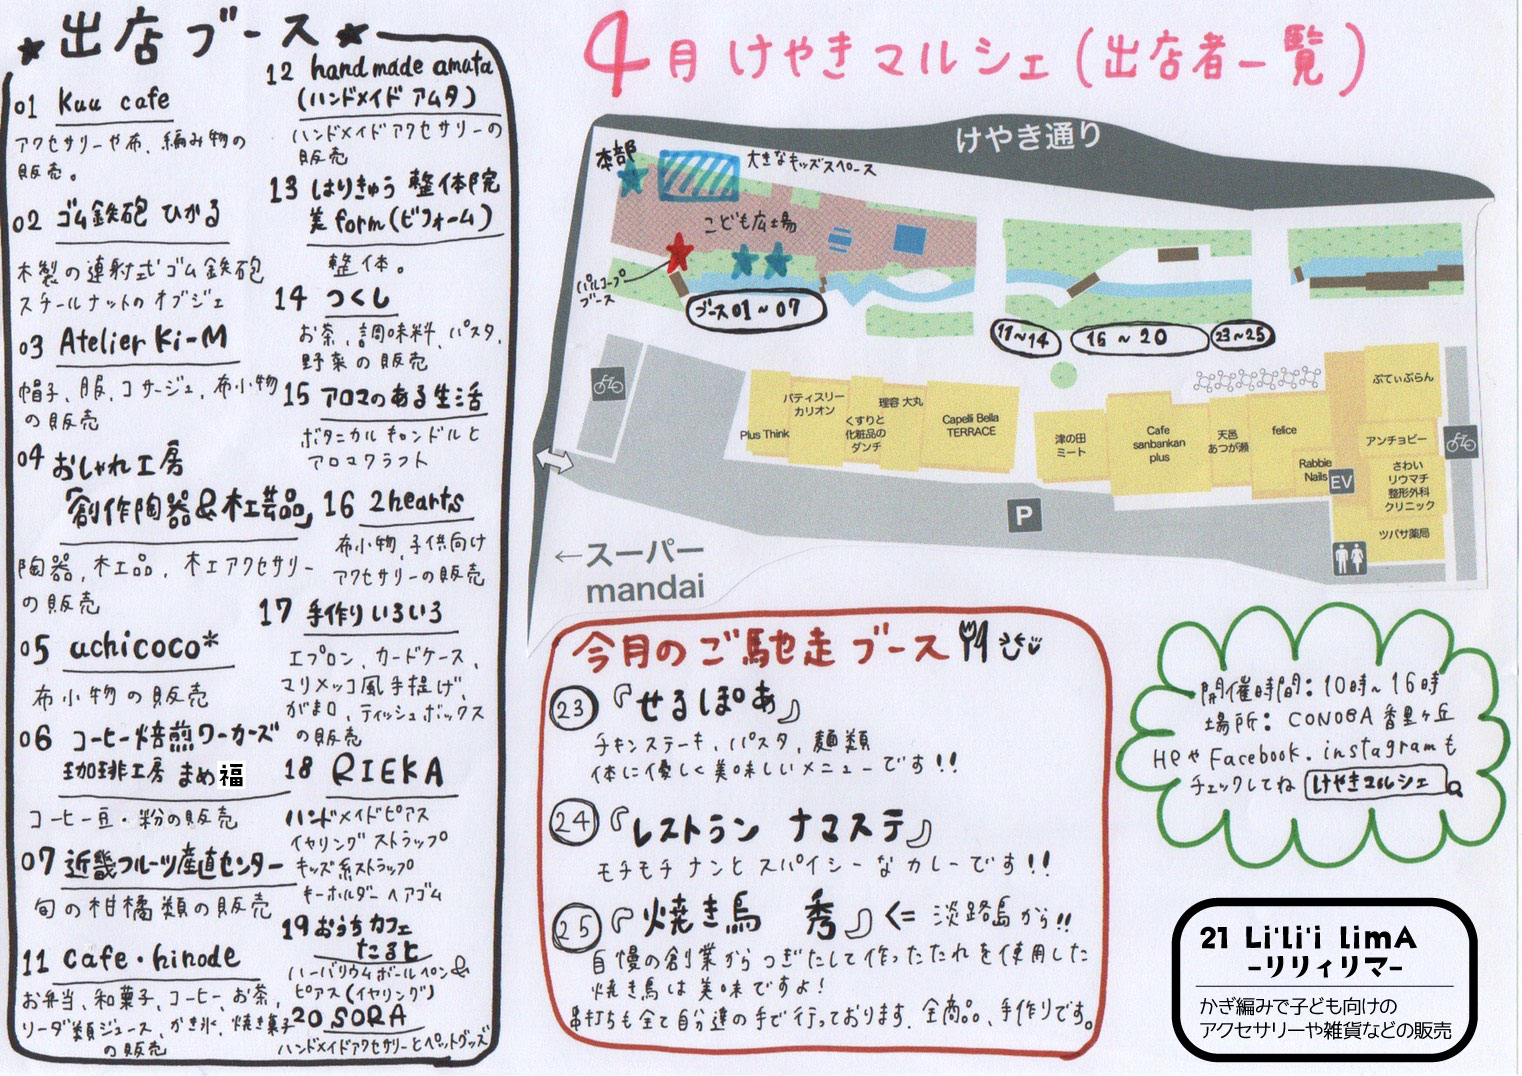 ★出店ブース★
01 Kuu cafe
アクセサリーや布、編み物の
販売。
02 ゴム鉄砲 ひかる
木製の連射式ゴム鉄砲
スチールナットのオブジェ
03 Atelier Ki-M
帽子、服、コサージュ、布小物
の販売
04 おしゃれ工房
「創作陶器&木工芸品」
陶器、木工品、木工アクセサリー
の販売
05 uchicoco*
布小物の販売
06 コーヒー焙煎ワーカーズ
珈琲工房 まめ福
コーヒー豆・粉の販売
07 近畿フルーツ産直センター
旬の柑橘類の販売
11 cafe・hinode
お弁当、和菓子、コーヒー、お茶、
ソーダ類ジュース、かき氷、焼き菓子
の販売
12 hand made amuta
(ハンドメイド アムタ)
ハンドメイドアクセサリーの
販売
13 はりきゅう 整体院
美 form(ビフォーム)
整体。
14 つくし
お茶、調味料、パスタ、
野菜の販売
15 アロマのある生活
ボタニカルキャンドルと
アロマクラフト
16 2hearts
布小物、子供向け
アクセサリーの販売
17 手作りいろいろ
エプロン、カードケース、
マリメッコ風手提げ、
がま口、ティッシュボックス
の販売
18 RIEKA
ハンドメイドピアス
イヤリング ストラップ
キッズ系ストラップ
キーホルダー ヘアゴム
19 おうちカフェ
たると
ハーバリウムボールペン&
ピアス(イヤリング)
20 SORA
ハンドメイドアクセサリーとペットグッズ
4月 けやきマルシェ(出店者一覧)
けやき通り
本部
大きなキッズスペース
こども広場
パルコープ
ブース
ブース01~07
11~14
16~20
23~25
Plus Think
パティスリー
カリオン
くすりと
化粧品の
ダンチ
理容 大丸
Capelli Bella
TERRACE
津の田
ミート
Cafe
sanbankan
plus
天邑
あつが瀬
felice
Rabbie
Nails
EV
ぷてぃぶらん
アンチョビー
さわい
リウマチ
整形外科
クリニック
ツバサ薬局
P
←スーパー
mandai
今月のご馳走ブース
23 『せるぽあ』
チキンステーキ、パスタ、麺類
体に優しく美味しいメニューです!!
24 『レストラン ナマステ』
モチモチナンとスパイシーなカレーです!!
25 『焼き鳥 秀』<= 淡路島から!!
自慢の創業からつぎたして作ったたれを使用した
焼き鳥は美味ですよ!
串打ちも全て自分達の手で行っております。全商品、手作りです。
開催時間:10時~16時
場所:CONOBA香里ヶ丘
HPやFacebook.instagramも
チェックしてね けやきマルシェ
21 Li'li'i limA
-リリィリマ-
かぎ編みで子ども向けの
アクセサリーや雑貨などの販売